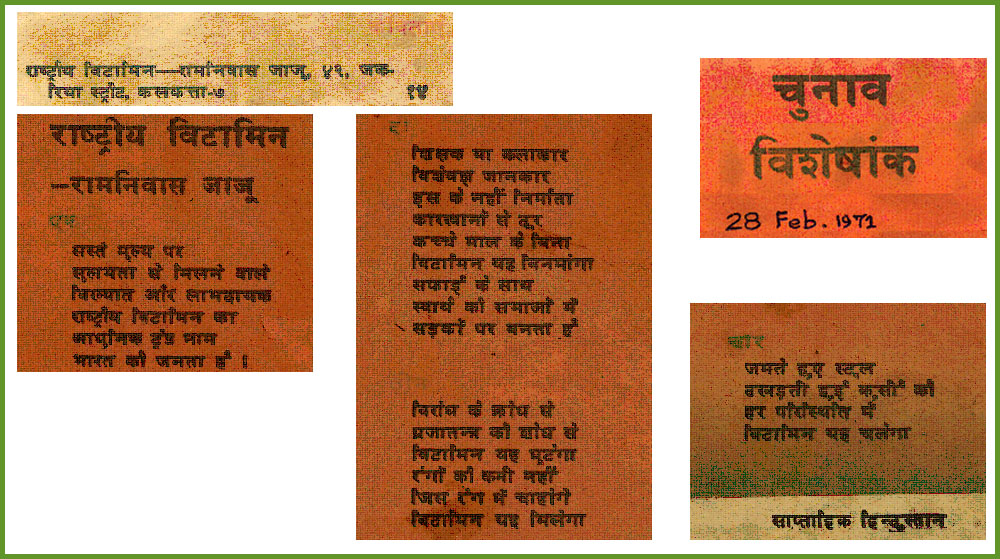 राष्ट्रीय विटामिन—रामनिवास जाजू, ४९, जक-
रिया स्ट्रीट, कलकत्ता-७ १४
राष्ट्रीय विटामिन
—रामनिवास जाजू
एक
सस्ते मूल्य पर
सुलभता से मिलने वाले
विख्यात और लाभदायक
राष्ट्रीय विटामिन का
आधुनिक ट्रेड नाम
भारत की जनता है ।
दो
शिक्षक या कलाकार
विशेषज्ञ जानकार
इस के नहीं निर्माता
कारखानों से दूर
कच्चे माल के बिना
विटामिन यह बिनमांगा
सफाई के साथ
स्वार्थ की समाजों में
सड़कों पर बनता है
विरोध के क्रोध से
प्रजातन्त्र की शोध से
विटामिन यह घुटेगा
रंगों की कमी नहीं
जिस रंग में चाहोगे
विटामिन यह मिलेगा
चुनाव
विशेषांक
28 Feb. 1971
चार
जमते हुए स्टूल
उखड़ती हुई कुर्सी की
हर परिस्थिति में
विटामिन यह चलेगा
साप्ताहिक हिन्दुस्तान